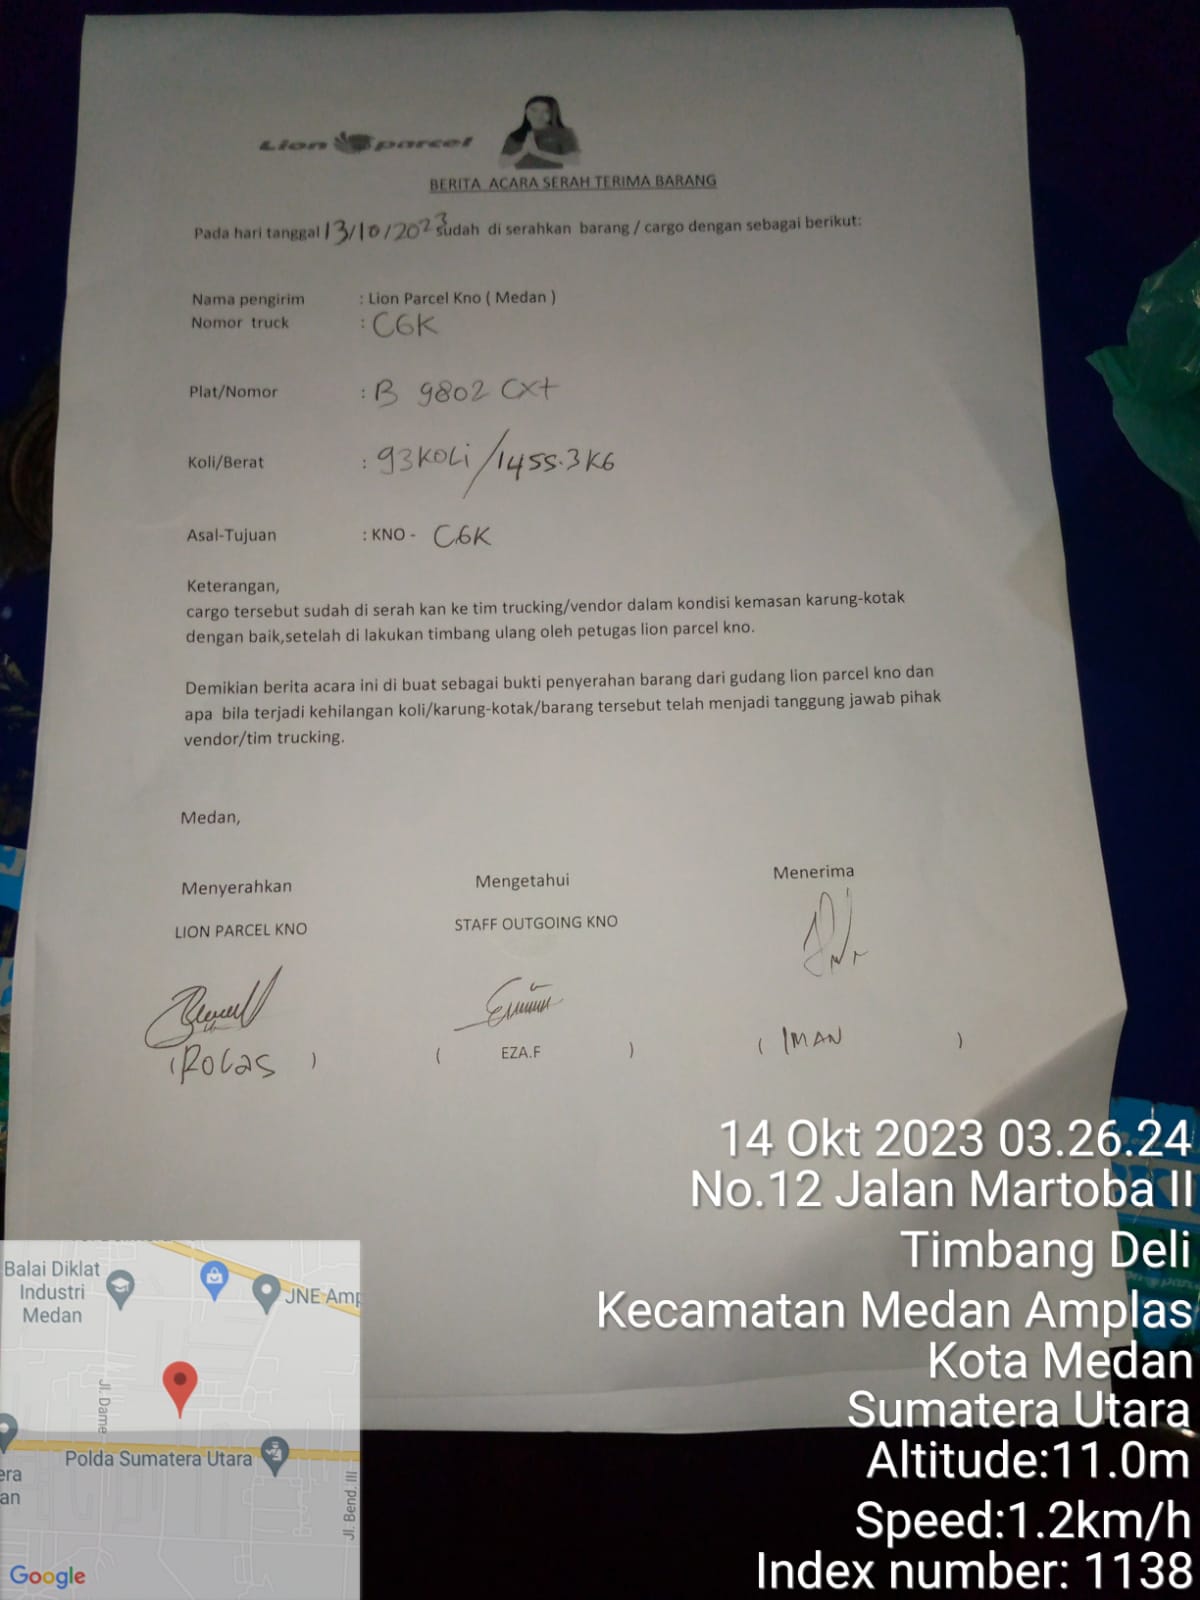 Lion parcel
BERITA ACARA SERAH TERIMA BARANG
Pada hari tanggal 13/10/2023 sudah di serahkan barang / cargo dengan sebagai berikut:
Nama pengirim : Lion Parcel Kno ( Medan )
Nomor truck : CGK
Plat/Nomor : B 9802 CXT
Koli/Berat : 93 KOLI / 1455.3 KG
Asal-Tujuan : KNO - CGK
Keterangan,
cargo tersebut sudah di serah kan ke tim trucking/vendor dalam kondisi kemasan karung-kotak
dengan baik,setelah di lakukan timbang ulang oleh petugas lion parcel kno.
Demikian berita acara ini di buat sebagai bukti penyerahan barang dari gudang lion parcel kno dan
apa bila terjadi kehilangan koli/karung-kotak/barang tersebut telah menjadi tanggung jawab pihak
vendor/tim trucking.
Medan,
Menyerahkan Mengetahui Menerima
LION PARCEL KNO STAFF OUTGOING KNO
( ROLAS ) ( EZA.F ) ( IMAN )
14 Okt 2023 03.26.24
No.12 Jalan Martoba II
Timbang Deli
Kecamatan Medan Amplas
Kota Medan
Sumatera Utara
Altitude:11.0m
Speed:1.2km/h
Index number: 1138
Balai Diklat
Industri
Medan
JNE Amp
Jl. Dame
Polda Sumatera Utara
era
an
Jl. Bend. III
Google